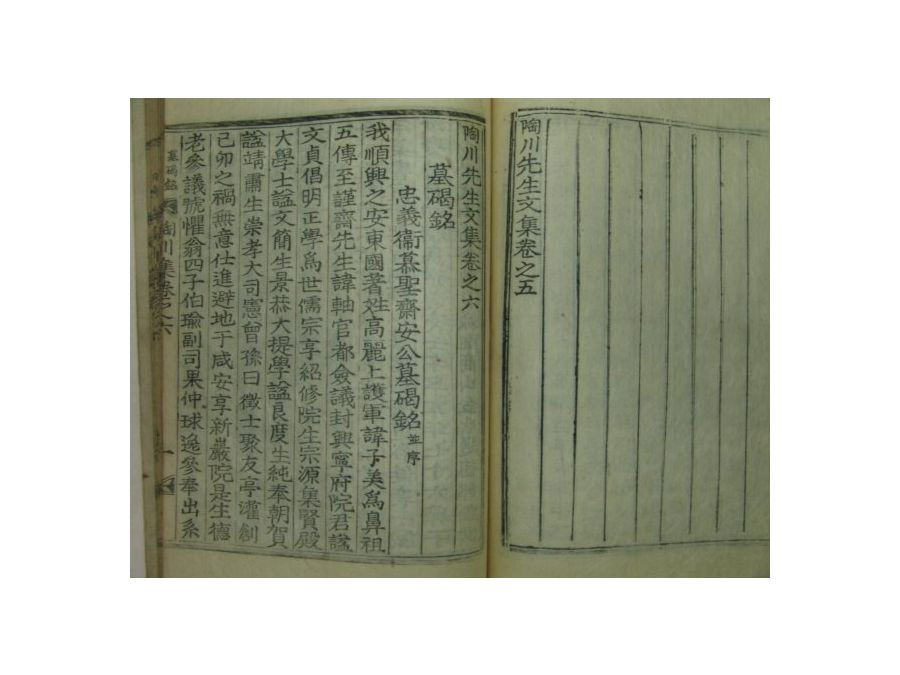 陶川先生文集卷之五
陶川先生文集卷之六
墓碣銘
忠義衛慕聖齋安公墓碣銘 並序
我順興之安東國著姓高麗上護軍諱子美爲鼻祖
五傳至謹齋先生諱軸官都僉議封興寧府院君諡
文貞倡明正學爲世儒宗享紹修院生宗源集賢殿
大學士諡文簡生景恭大提學諡良度生純奉朝賀
諡靖肅生崇孝大司憲曾孫曰徵士聚友亭灌創
己卯之禍無意仕進避地于咸安享新巖院是生德
老參議號懼翁四子伯瑜副司果仲球逸參奉出系
墓碣銘 陶川集卷之六 一